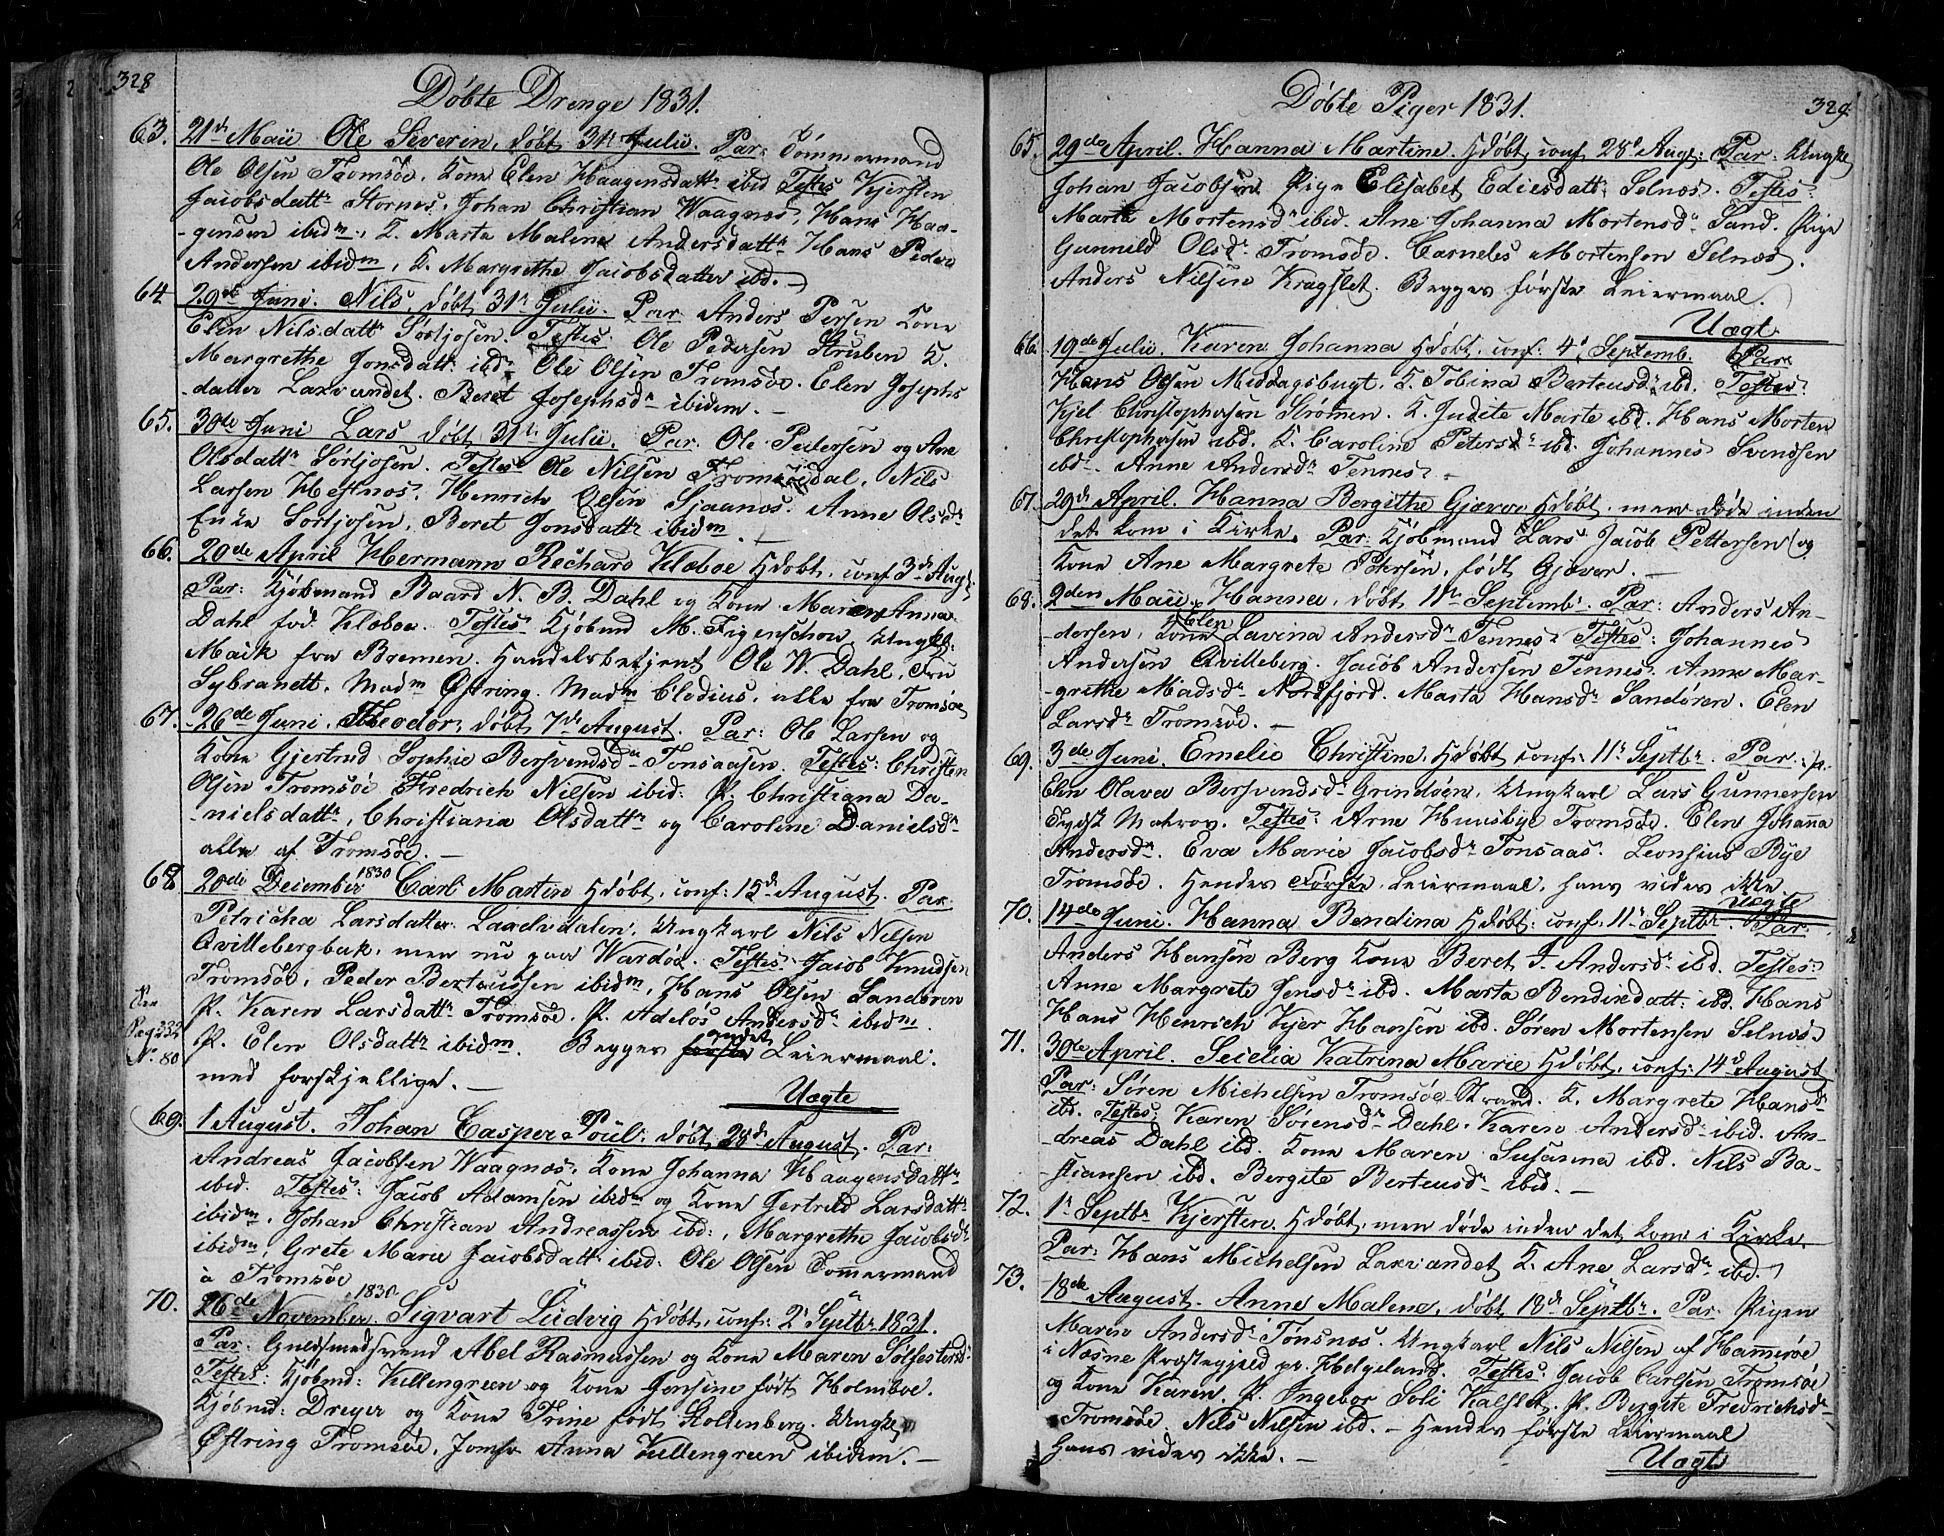 328
Döbte Drenge 1831.
63. 21de Maii Ole Severin, döbt 31te Julii. Par: Tömmermand
Ole Olsen Tromsöe, Kone Elen Haagensdattr ibid Testes Kjersten
Jacobsdattr Stornes, Johan Christian Waagnæs, Hans Haa-
-gensen ibidm, K. Marta Malena Andersdattr Hans Peder
Andersen ibidm, K. Margrethe Jacobsdatter ibd. —
64 29de Juni. Nils, döbt 31te Julii. Par Anders Persen Kone
Elen Nilsdattr Sörtjosen. Testes Ole Pedersen Struben K.
Margrethe Jonsdattr ibd. Ole Olsen Tromsöe. Elen Josephs
-datter Laxvandet. Beret Josephsdr ibidem. —
65. 30de Juni Lars döbt 31te Julii. Par. Ole Pedersen og Ane
Olsdattr Sörtjosen. Testes Ole Nilsen Tromsöedal, Nils
Larsen Hestnæs, Henrich Olsen Sjaanæs. Anne Olsdr
Enke Sörtjosen, Beret Jonsdattr ibidm. —
66. 20de April Hermann Richard Klæboe Hdöbt, conf. 3de Augt.
Par: Kjöbmand Baard N. B. Dahl og Kone Maren Anna
Dahl föd Klæboe. Testes Kjöbmd M. Figenschou, Ungk.
Maik fra Bremen. Handelsbetjent Ole W. Dahl, Fru
Sybranett, Madm Öftring. Madm Clodius, alle fra Tromsöe
67. 26de Juni. Theodor, döbt 7de August. Par: Ole Larsen og
Kone Gjertrud Sophie Bersvendsdr Tonsaasen. Testes: Christen
Olsen Tromsöe Fredrich Nilsen ibid: P. Christiana Da-
-nielsdattr, Christiana Olsdattr og Caroline Danielsdr
alle af Tromsöe. —
68 20de December 1830 Carl Martin Hdöbt, conf: 15de August. Par.
Petricka Larsdatter Laadvdalen, Ungkarl Nils Nilsen
Qvittebergbak, men nu paa Wardöe. Testes Jacob Knudsen
Tromsöe, Peder Berteussen ibidm, Hans Olsen Sandören
P. Karen Larsdattr Tromsöe. P. Adelos Andersdr ibidm.
P. Elen Olsdattr ibidm. Begges förste andet Leiermaal
med forskjellige. —
Pag 232
No 80
Uægte
69. 1 August. Johan Casper Poul döbt 28de August. Par:
Andreas Jacobsen Waagnæs, Kone Johanna Haagensdattr
ibid. Testes: Jacob Adamsen ibidm og Kone Gertrud Larsdattr
ibidm. Johan Christian Andreassen ibd:, Margrethe Jacobsdr
ibidm, Grete Marie Jacobsdattr ibid. Ole Olsen Tömmermand
à Tromsöe
70. 26de November 1830. Sigvart Ludvig Hdöbt, conf: 2den Septbr 1831.
Par. Guldsmedsvend Abel Rasmussen og Kone Maren Solfestersdr
Testes: Kjöbmd: Killengreen og Kone Jensine födt Holmboe.
Kjöbmd: Dreyer og Kone Trine födt Stoltenberg. Ungk.
Öftring Tromsöe, Jomfr Anna Killengreen ibidem. —
Döbte Piger 1831.
329
65. 29de April. Hanna Martine. Hdöbt, conf 28de Augt: Par: Ungk
Johan Jacobsen Pige Elisabet Ediesdatt: Selnæs. Testes.
Marta Mortensdr ibid. Ane Johanna Mortensdr Sand. Pige
Gunnild Olsdr Tromsöe. Carneles Mortensen Selnæs.
Anders Nilsen Kragslet. Begges förste Leiermaal.
Uægt
66. 19de Julii. Karen Johanna Hdöbt, conf: 4de Septemb. Par
Hans Olsen Middagsbugt, K. Tobina Berteusdr ibd. Testes
Kjel Christophersen Strömen. K. Judite Marte ibd. Hans Morten
Christophersen ibd. K. Caroline Petersdr ibd. Johannes Svendsen
ibd. Anne Andersdr Tennes. —
67. 29de April. Hanna Bergithe Gjæver Hdöbt, men döde inden
det kom i Kirke. Par: Kjöbmand Lars Jacob Pettersen og
Kone Ane Margrete Petersen, födt Gjæver. —
68. 2den Maii. Hanna, döbt 11te Septemb. Par: Anders An-
-dersen, Kone Elen Lavina Andersdr Tennes Testes: Johannes
Andersen Qvitteberg. Jacob Andersen Tennes. Anne Mar-
-grethe Madsdr Nordfjord. Marta Hansdr Sandören. Elen
Larsdr Tromsöe. —
69. 3de Juni. Emelie Christine, Hdöbt conf: 11te Septbr. Par: p.
Elen Olava Bersvendsdr Grindöen, Ungkarl Lars Gunnersen
Tydsk Matros. Testes: Arne Hunsbye Tromsöe. Elen Johanna
Andersdr. Eva Marie Jacobsdr Tonsaas. Leonsius Bye
Tromsöe. Hendes förste Leiermaal, hans vides ikke
Uægte
70. 14de Juni. Hanna Bendina Hdöbt: conf: 11te Septbr. Par.
Anders Hansen Berg Kone Beret J. Andersdr ibd. Testes:
Anne Margrete Jensdr ibd. Marta Bendixdatt. ibd. Hans
Hans Henrich Kjer Hansen ibd. Sören Mortensen Selnæs.
71. 30te April. Seielia Katrina Marie Hdöbt, conf: 14de August
Par: Sören Michelsen Tromsöe Strand. K. Margrete Hansdr
ibd. Testes: Karen Sörensdr Dahl. Karen Andersdr ibid. An-
-dreas Dahl ibd. Kone Maren Susanna ibd. Nils Ba-
-stiansen ibd. Bergite Berteusdr ibid. —
72. 1ste Septbr Kjersten Hdöbt, men döde inden det kom i Kirke.
Par: Hans Michelsen Laxvandet K. Ane Larsdr ibd.
73. 18de August. Anne Malene, döbt 18de Septbr. Par. Pigen
Maren Andersdr Tönsnæs. Ungkarl Nils Nilsen af Hamröe
i Næsne Præstegjeld pr. Helgeland. Testes: Jacob Carlsen Tromsöe
og Kone Karen. P. Ingebor Soli Kalslet, P. Bergite Fredrichsdr
Tromsöe. Nils Nilsen ibd. — Hendes förste Leiermaal
hans vides ikke. —
Uægte